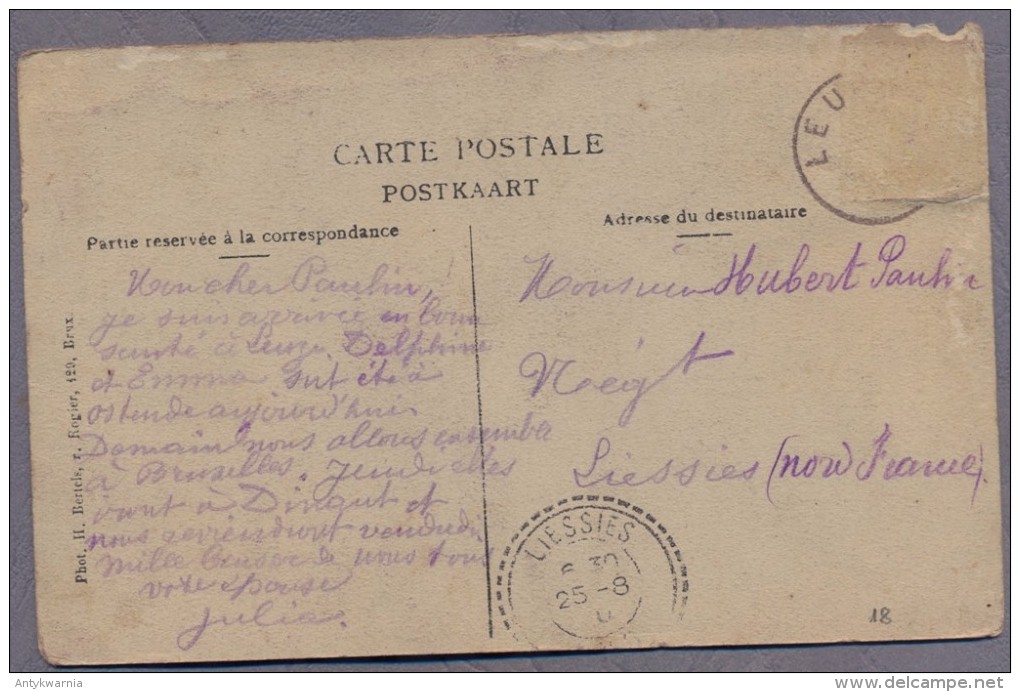 CARTE POSTALE
POSTKAART
Partie reservée à la correspondance
Adresse du destinataire
LEU
Mon cher Paulin,
je suis arrivée en bonne
santé à Leuze. Delphine
et Emma ont été à
ostende aujourd'hui
Domain nous allons ensemble
à Bruxelles. jeudi elles
iront à Dinant et
nous reviendront vendredi
mille baiser de nous tous
votre épouse
Julia.
Monsieur Hubert Paulin
Négt
Liessies (nord France).
LIESSIES
30
25-8
18
Phot. H. Bertels, r. Rogier, 129, Brux
Antykwarnia
www.delcampe.net